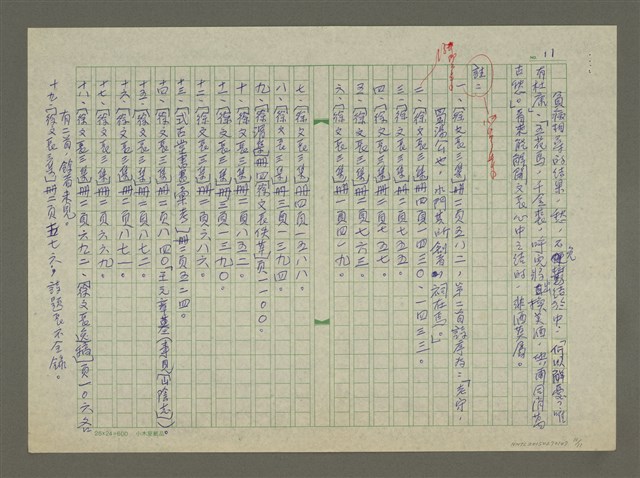 11
負痛相尋的結果，秋，不
元
結於中：「何以解憂？唯
有杜康」、「五花馬，千金裘，呼兒將出換美酒，與爾同消萬
古愁」。看來能解開文長心中之結的，非酒莫屬。
註：
一、〔徐文長三集〕冊二頁五八二，第二首詩序為：「老寧，
蜀漢公也，水門其所創者，祠在焉。」
二、〔徐文長三集〕冊四頁一四三〇、一四三三。
三、〔徐文長三集〕冊二頁七五五。
四、〔徐文長三集〕冊二頁七五七。
五、〔徐文長三集〕冊二頁七六三。
六、〔徐文長三集〕冊一頁四一九。
七、〔徐文長三集〕冊二頁五八一。
八、〔徐文長三集〕冊三頁一三九四。
九、〔徐渭集〕冊四徐文長佚草頁一一〇〇。
十、〔徐文長三集〕冊二頁八七二。
十一、〔徐文長三集〕冊三頁一三九〇。
十二、〔徐文長三集〕冊二頁六八六。
十三、〔式古堂書畫彙考〕冊二頁五二四。
十四、〔徐文長三集〕冊二頁八四〇「王元章墓」（事見〔山陰志〕）
十五、〔徐文長三集〕冊二頁八五二。
十六、〔徐文長三集〕冊二頁八七一。
十七、〔徐文長三集〕冊二頁
十八、〔徐文長三集〕冊二頁六九二、〔徐文長逸稿〕頁一〇六各
有二首，錄者未見。
十九、〔徐文長三集〕冊二頁五七六，詩題長不全錄。
25×24=600